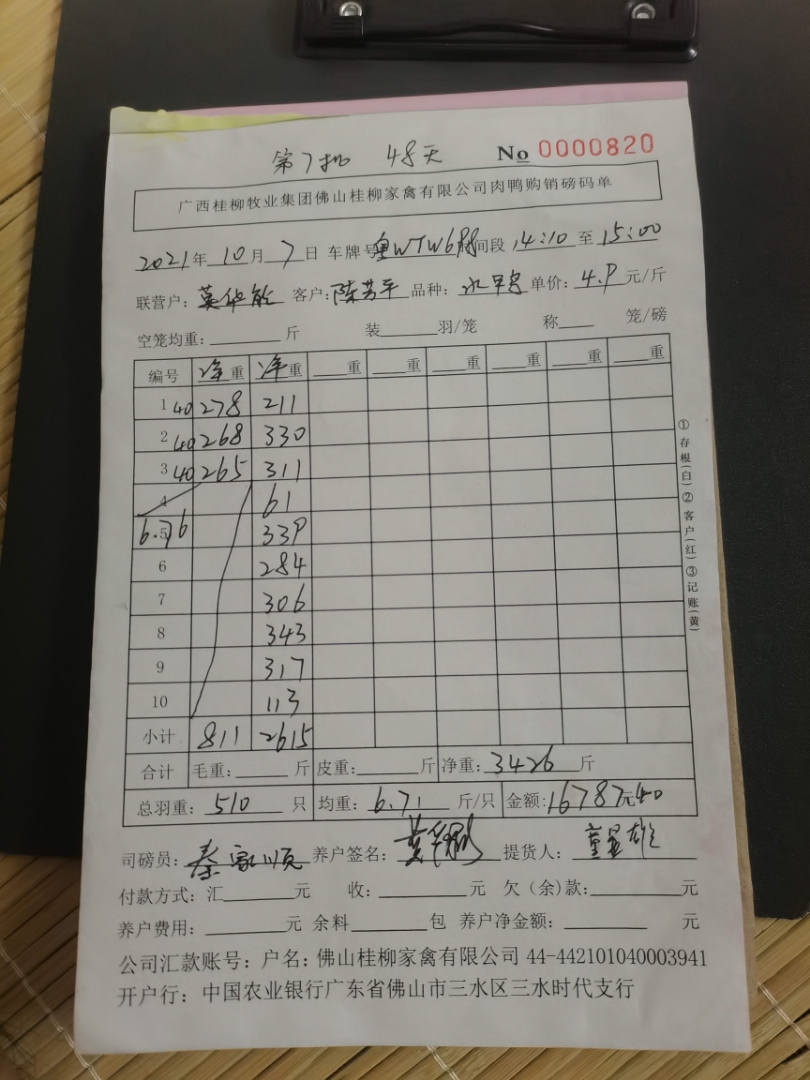 第7批 48天 No 0000820
广西桂柳牧业集团佛山桂柳家禽有限公司肉鸭购销磅码单
2021年10月7日 车牌号 粤WTW6 间段14:10至15:00
联营户: 客户:陈芳平 品种: 单价:4.9元/斤
空笼均重: 斤 装 羽/笼 称 笼/磅
编号 净重 净重 重 重 重 重 重 重
1 40 278 211
2 40 268 330
3 40 265 311
4 61
5 6.76 339
6 284
7 306
8 343
9 317
10 113
小计 811 2615
合计 毛重: 斤 皮重: 斤 净重:3426斤
总羽重:510只 均重:6.71斤/只 金额:16787元40
司磅员:秦家顺 养户签名: 提货人:
付款方式:汇 元 收: 元 欠(余)款: 元
养户费用: 元 余料 包 养户净金额: 元
公司汇款账号:户名:佛山桂柳家禽有限公司 44-442101040003941
开户行:中国农业银行广东省佛山市三水区三水时代支行
①存根(白)②客户(红)③记账(黄)